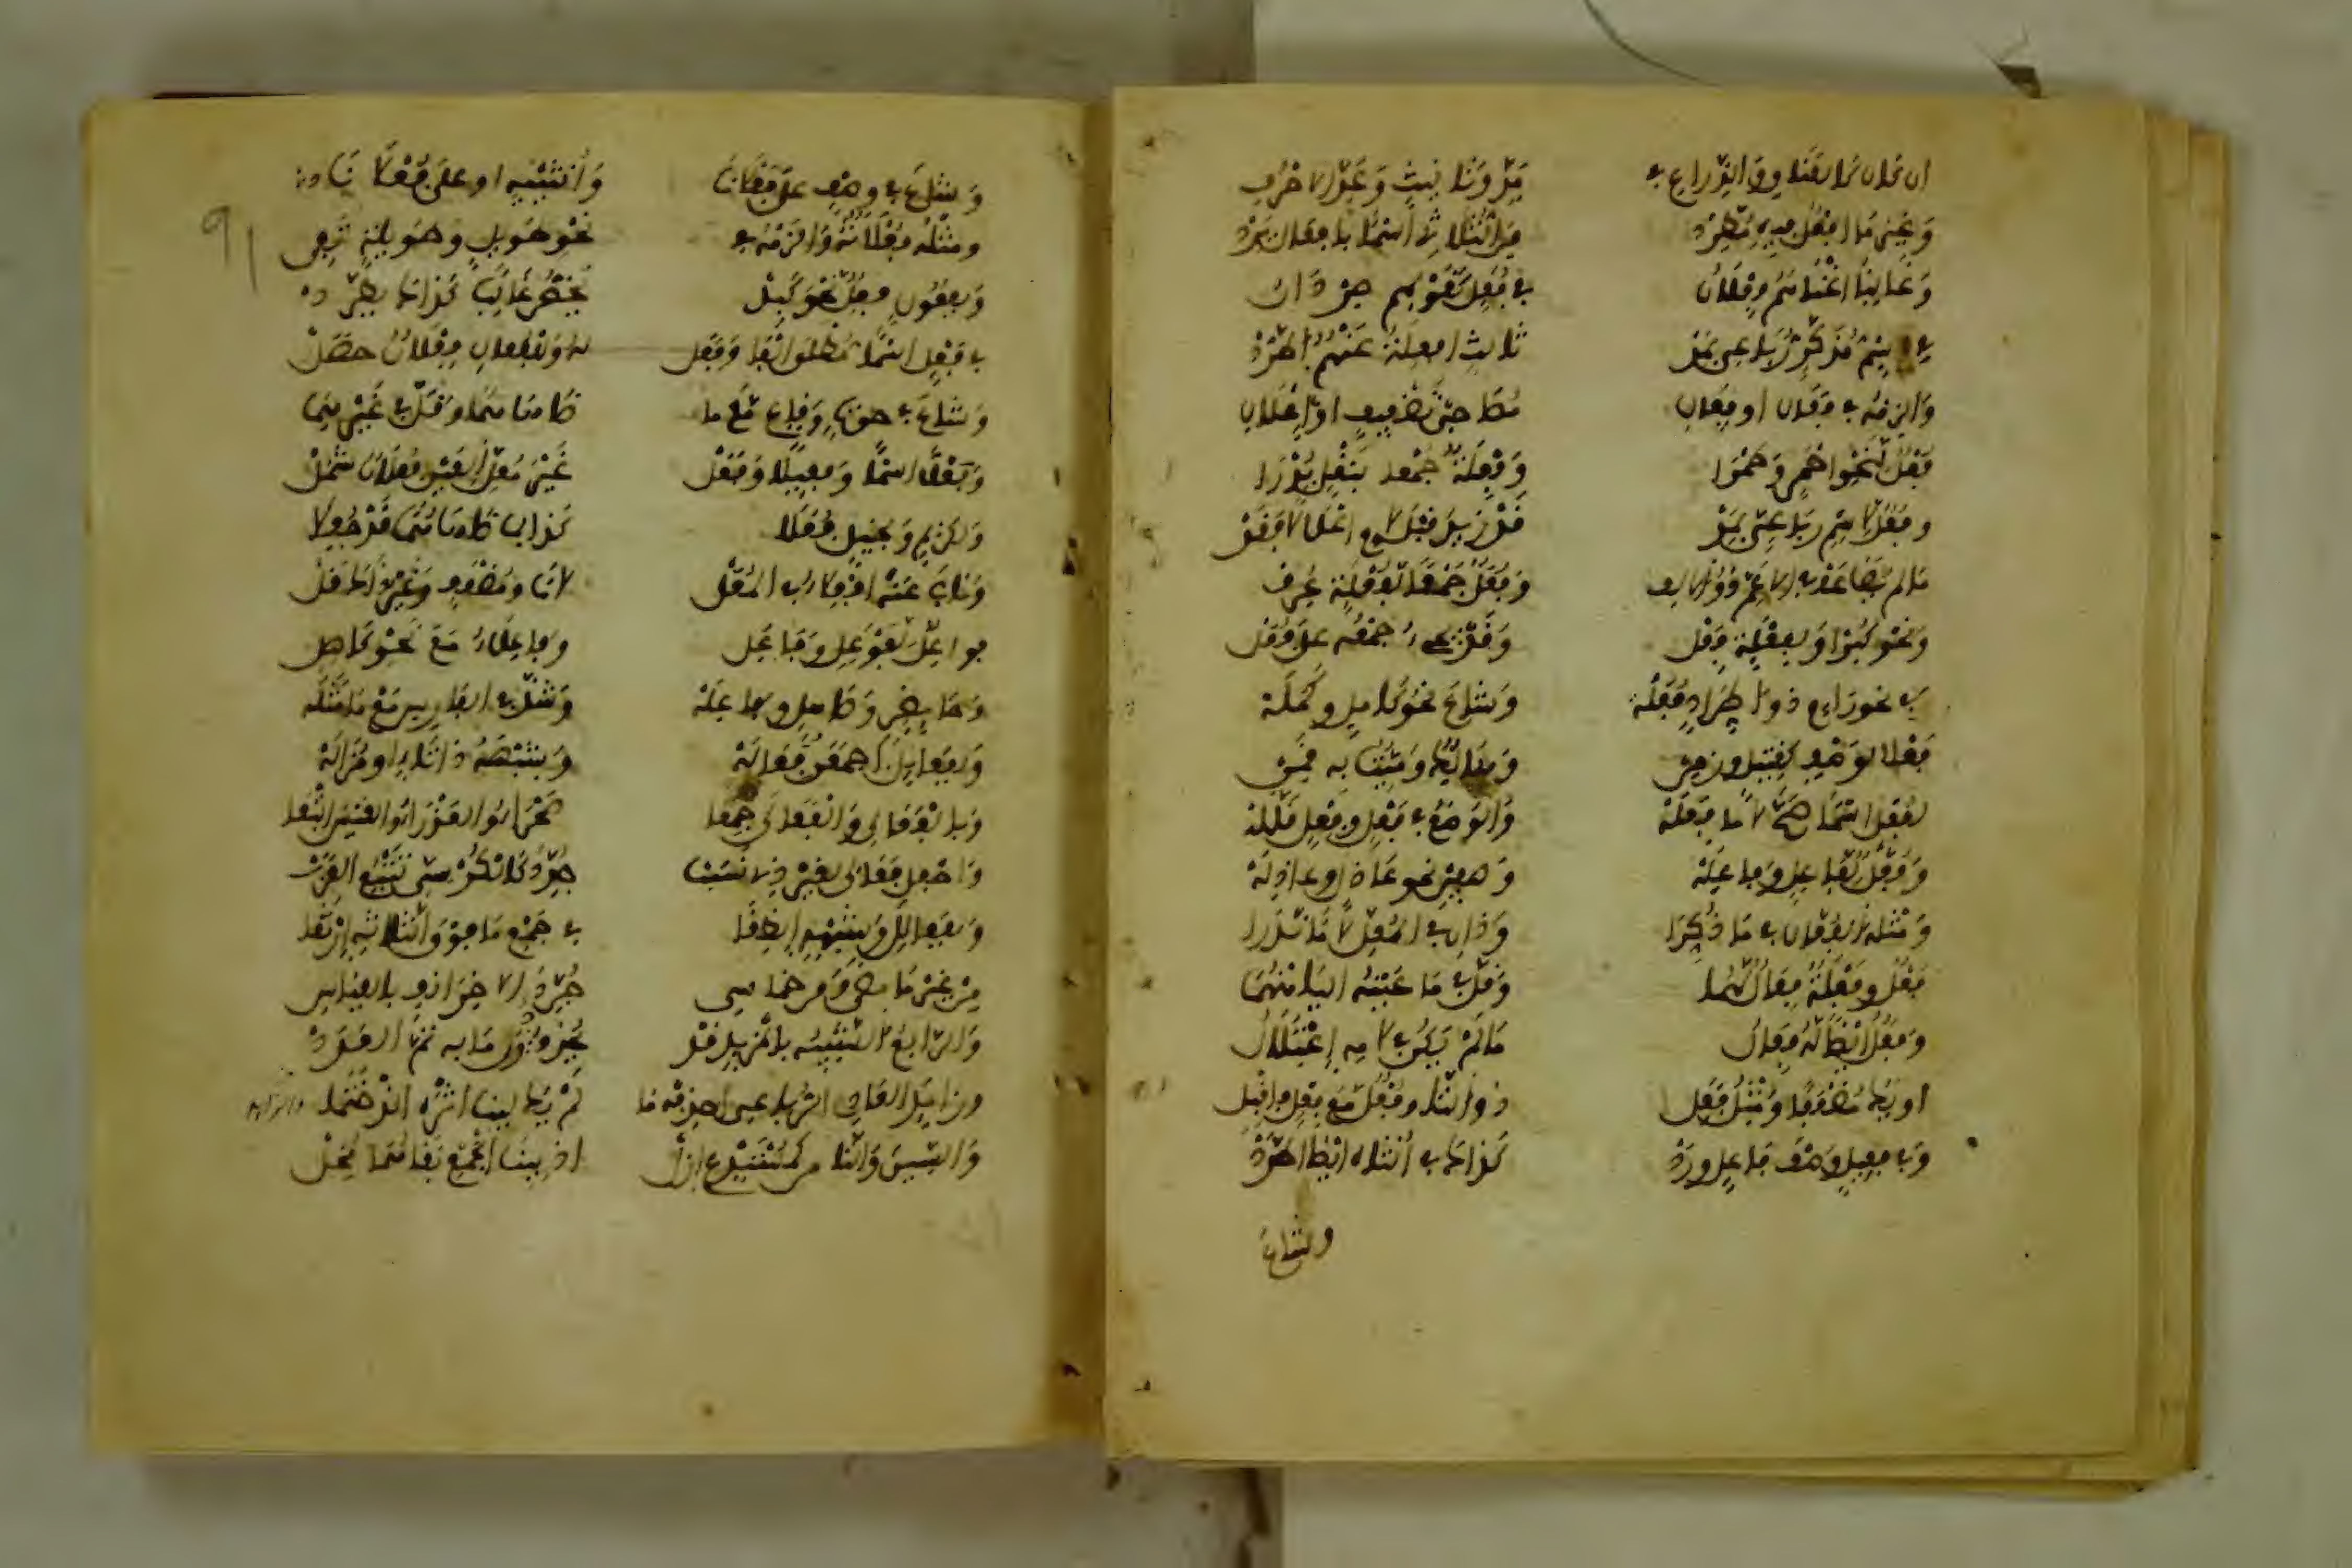 ان كان كالعناق والذراع في مد وتانيث وعد الاحرف
وغير ما افعل فيه مطرد من الثلاثي اسما بافعال يرد
وغالبا اغناهم فعلان في فعل كقولهم صردان
في اسم مذكر رباعي بمد ثالث افعلة عنهم اطرد
والزمه في فعال او فعال مصاحبي تضعيف او اعلال
فعل لنحو احمر وحمرا وفعلة جمعا بنقل يدرا
وفعل لاسم رباعي بمد قد زيد قبل لام اعلالا فقد
ما لم يضاعف في الاعم ذو الالف وفعل جمعا لفعلة عرف
ونحو كبرا ولفعلة فعل وقد يجيء جمعه على فعل
في نحو رام ذو اطراد فعله وشاع نحو كامل وكملة
فعلا لوصف كقتيل وزمن وهالك وميت به قمن
لفعل اسما صح لاما فعلة والوضع في فعل وفعل قلله
وفعل لفاعل وفاعلة وصفين نحو عاذل وعاذلة
ومثله الفعال في ما ذكرا وذان في المعل لاما ندرا
فعل وفعلة فعال لهما وقل في ما عينه اليا منهما
وفعل ايضا له فعال ما لم يكن في لامه اعتلال
او يك مضعفا ومثل فعل ذو التا وفعل مع فعل فاقبل
وفي فعيل وصف فاعل ورد كذاك في انثاه ايضا اطرد
وشاع
وشاع في وصف على فعلانا وانثييه او على فعلانا
ومثله فعلانة والزمه في نحو طويل وطويلة تفي
وبفعول فعل نحو كبد يخص غالبا كذاك يطرد
في فعل اسما مطلق الفا وفعل له وللفعال فعلان حصل
وشاع في حوت وقاع مع ما ضاهاهما وقل في غيرهما
وفعلا اسما وفعيلا وفعل غير معل العين فعلان شمل
ولكريم وبخيل فعلا كذا لما ضاهاهما قد جعلا
وناب عنه افعلاء في المعل لاما ومضعف وغير ذاك قل
فواعل لفوعل وفاعل وفاعلاء مع نحو كاهل
وحائض وصاهل وفاعلة وشذ في الفارس مع ما ماثله
وبفعائل اجمعن فعالة وشبهه ذا تاء او مزالة
وبالفعالي والفعالى جمعا صحراء والعذراء والقيس اتبعا
واجعل فعالي لغير ذي نسب جدد كالكرسي تتبع العرب
وبفعالل وشبهه انطقا في جمع ما فوق الثلاثة ارتقا
من غير ما مضى ومن خماسي جرد الاخر انف بالقياس
والرابع الشبيه بالمزيد قد يحذف دون ما به تم العدد
وزايد العادي الرباعي احذفه ما لم يك لينا اثره الذ ختما
والسين والتا من كمستدع ازل اذ ببنا الجمع بقاهما مخل